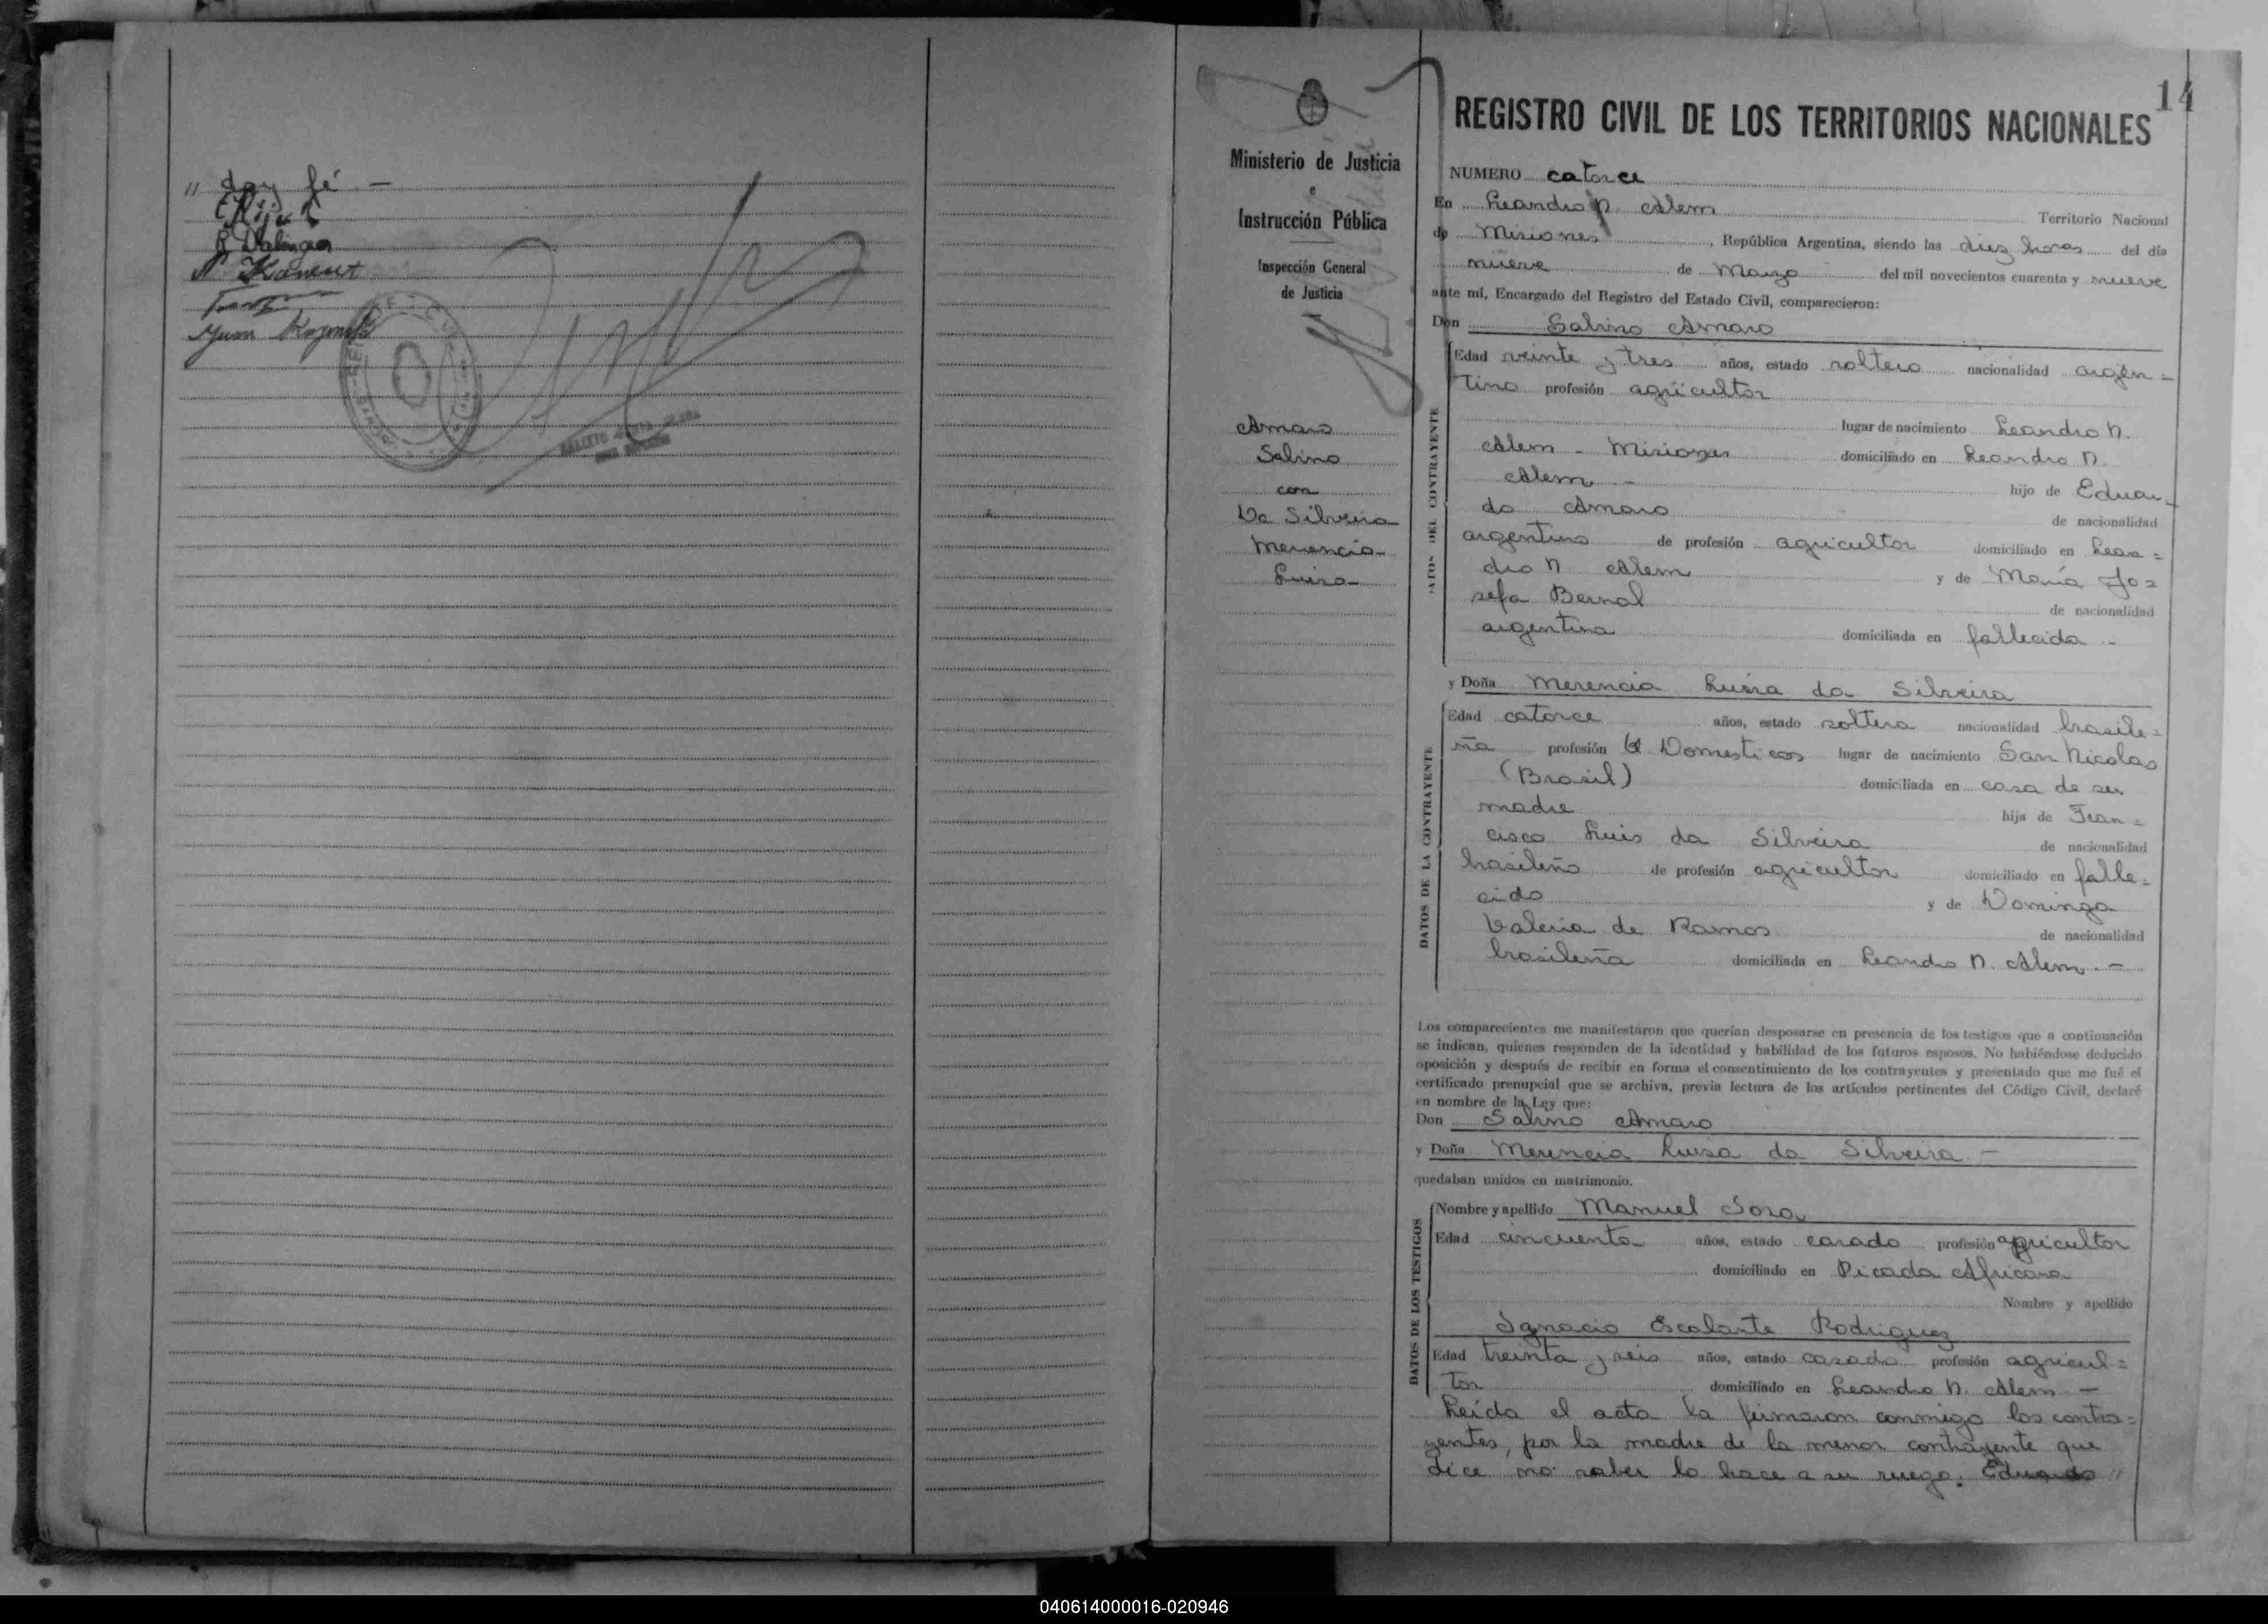 " doy fé. —
R Dalinger
Juan
14
REGISTRO CIVIL DE LOS TERRITORIOS NACIONALES
Ministerio de Justicia
e
Instrucción Pública
Inspección General
de Justicia
Amaro
Sabino
con
Da Silveira
Merencia
Luisa
NUMERO catorce
En Leandro N. Alem Territorio Nacional
de Misiones, República Argentina, siendo las diez horas del día
nueve de Marzo del mil novecientos cuarenta y nueve
ante mí, Encargado del Registro del Estado Civil, comparecieron:
Don Sabino Amaro
DATOS DEL CONTRAYENTE
Edad veinte y tres años, estado soltero nacionalidad argen=
tino profesión agricultor
lugar de nacimiento Leandro N.
Alem - Misiones domiciliado en Leandro N.
Alem - hijo de Eduar-
do Amaro de nacionalidad
argentino de profesión agricultor domiciliado en Lean=
dro N Alem y de María Jo=
sefa Bernal de nacionalidad
argentina domiciliada en fallecida -
y Doña Merencia Luisa da Silveira
DATOS DE LA CONTRAYENTE
Edad catorce años, estado soltera nacionalidad brasile=
ña profesión Q Domesticos lugar de nacimiento San Nicolas
(Brasil) domiciliada en casa de su
madre hija de Fran=
cisco Luis da Silveira de nacionalidad
brasileño de profesión agricultor domiciliado en falle=
cido y de Dominga
Valeria de Ramos de nacionalidad
brasileña domiciliada en Leandro N. Alem. -
Los comparecientes me manifestaron que querían desposarse en presencia de los testigos que a continuación
se indican, quienes responden de la identidad y habilidad de los futuros esposos. No habiéndose deducido
oposición y después de recibir en forma el consentimiento de los contrayentes y presentado que me fué el
certificado prenupcial que se archiva, previa lectura de los artículos pertinentes del Código Civil, declaré
en nombre de la Ley que:
Don Sabino Amaro
y Doña Merencia Luisa da Silveira -
quedaban unidos en matrimonio.
DATOS DE LOS TESTIGOS
Nombre y apellido Manuel Sosa
Edad cincuenta años, estado casado profesión agricultor
domiciliado en Picada Africana
Nombre y apellido
Ignacio Escalante Rodriguez
Edad treinta y seis años, estado casado profesión agricul=
tor domiciliado en Leandro N. Alem -
Leída el acta la firmaron conmigo los contra=
yentes, por la madre de la menor contrayente que
dice no saber lo hace a su ruego. Eduardo "
040614000016-020946